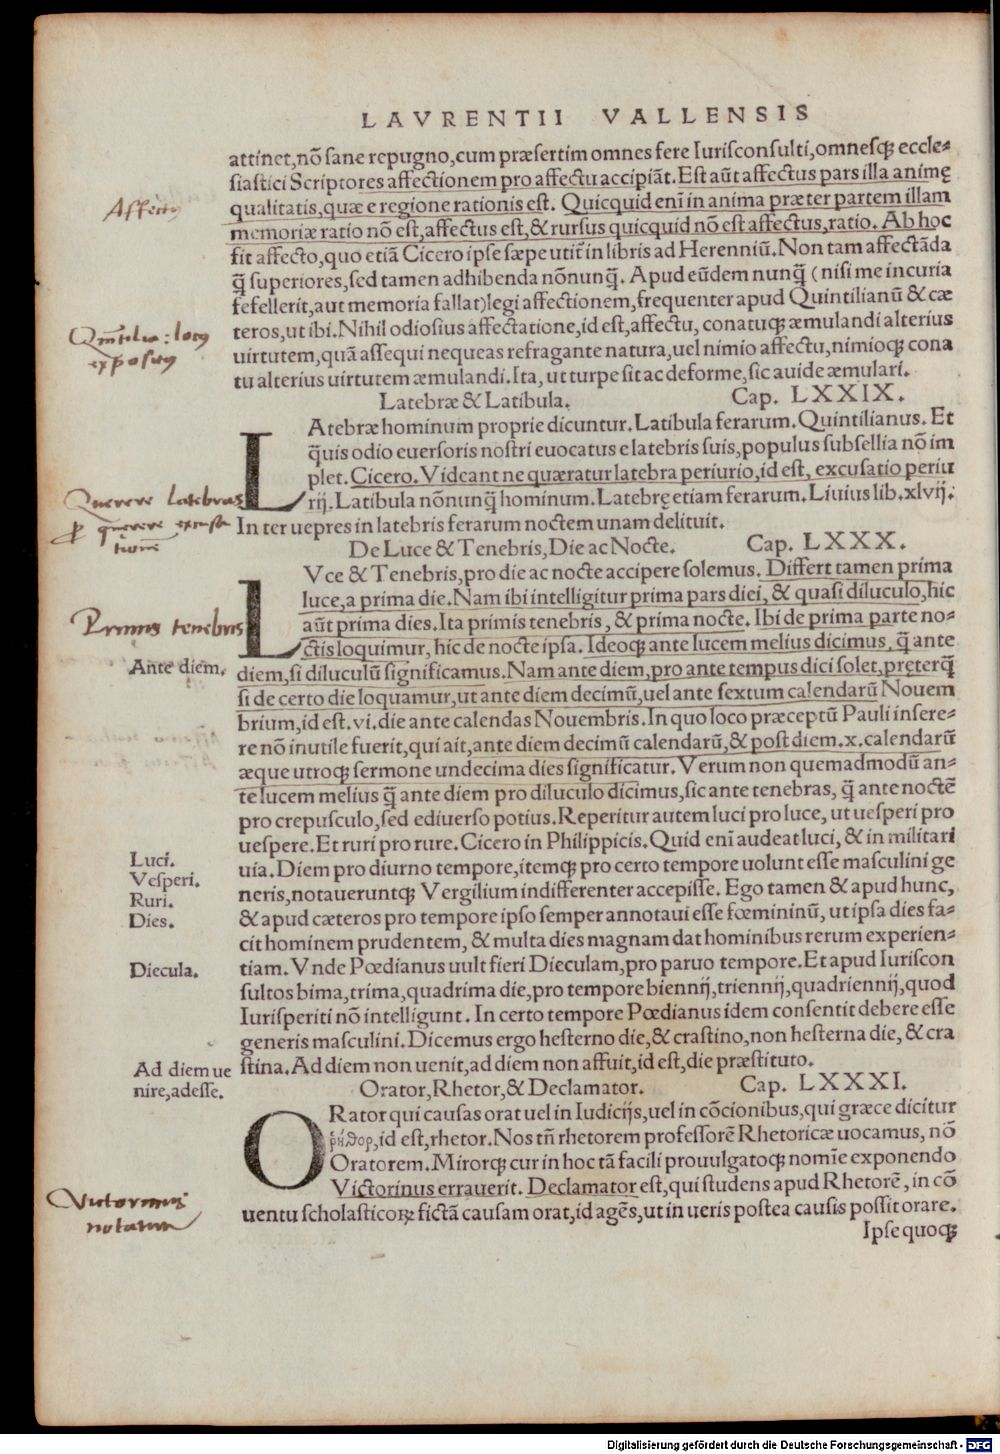 LAVRENTII VALLENSIS
attinet,nō sane repugno,cum præsertim omnes fere Iurisconsulti,omnesqꝫ eccle-
siastici Scriptores affectionem pro affectu accipiāt.Est aūt affectus pars illa animę
Affectus
qualitatis,quæ e regione rationis est. Quicquid enī in anima præter partem illam
memoriæ ratio nō est,affectus est,& rursus quicquid nō est affectus,ratio. Ab hoc
fit affecto,quo etiā Cicero ipse sæpe utit̃ in libris ad Herenniū. Non tam affectāda
q̄ superiores,sed tamen adhibenda nōnunq̄. Apud eūdem nunq̄ (nisi me incuria
fefellerit,aut memoria fallat)legi affectionem,frequenter apud Quintilianū & cæ
teros,ut ibi.Nihil odiosius affectatione,id est,affectu, conatuqꝫ æmulandi alterius
uirtutem,quā assequi nequeas refragante natura,uel nimio affectu,nimioqꝫ cona
tu alterius uirtutem æmulandi.Ita, ut turpe sit ac deforme,sic auide æmulari.
Latebræ & Latibula. Cap. LXXIX.
LAtebræ hominum proprie dicuntur.Latibula ferarum.Quintilianus. Et
q̄uis odio euersoris nostri euocatus e latebris suis,populus subsellia nō im
plet.Cicero.Videant ne quæratur latebra periurio,id est, excusatio periu
Querere latebras
rij.Latibula nōnunq̄ hominum.Latebrę etiam ferarum.Liuius lib.xlvij.
In ter uepres in latebris ferarum noctem unam delituit.
De Luce & Tenebris,Die ac Nocte. Cap. LXXX.
LVce & Tenebris,pro die ac nocte accipere solemus. Differt tamen prima
luce,a prima die.Nam ibi intelligitur prima pars diei, & quasi diluculo,hic
aūt prima dies.Ita primis tenebris, & prima nocte. Ibi de prima parte no-
Primis tenebris
ctis loquimur, hic de nocte ipsa. Ideoqꝫ ante lucem melius dicimus, q̄ ante
Ante diem.
diem,si diluculū significamus.Nam ante diem,pro ante tempus dici solet,pręterq̄
si de certo die loquamur,ut ante diem decimū,uel ante sextum calendarū Nouem
brium,id est.vi.die ante calendas Nouembris.In quo loco præceptū Pauli insere-
re nō inutile fuerit,qui ait,ante diem decimū calendarū,& post diem.x.calendarū
æque utroqꝫ sermone undecima dies significatur.Verum non quemadmodū an-
te lucem melius q̄ ante diem pro diluculo dicimus,sic ante tenebras, q̄ ante noctē
pro crepusculo,sed ediuerso potius.Reperitur autem luci pro luce, ut uesperi pro
uespere.Et ruri pro rure. Cicero in Philippicis. Quid enī audeat luci, & in militari
Luci.
uia. Diem pro diurno tempore,itemqꝫ pro certo tempore uolunt esse masculini ge
Vesperi.
neris,notaueruntqꝫ Vergilium indifferenter accepisse. Ego tamen & apud hunc,
Ruri.
& apud cæteros pro tempore ipso semper annotaui esse fœmininū, ut ipsa dies fa-
Dies.
cit hominem prudentem, & multa dies magnam dat hominibus rerum experien-
Diecula.
tiam. Vnde Pœdianus uult fieri Dieculam,pro paruo tempore.Et apud Iuriscon
sultos bima,trima,quadrima die,pro tempore biennij,triennij,quadriennij,quod
Iurisperiti nō intelligunt. In certo tempore Pœdianus idem consentit debere esse
generis masculini.Dicemus ergo hesterno die,& crastino,non hesterna die, & cra
stina.Ad diem non uenit,ad diem non affuit,id est,die præstituto.
Ad diem ue
nire,adesse.
Orator,Rhetor,& Declamator. Cap. LXXXI.
ORator qui causas orat uel in Iudicijs,uel in cōcionibus,qui græce dicitur
ῥήτωρ,id est,rhetor.Nos tñ rhetorem professorē Rhetoricæ uocamus, nō
Oratorem.Mirorqꝫ cur in hoc tā facili prouulgatoqꝫ nomīe exponendo
Victorinus errauerit. Declamator est,qui studens apud Rhetorē, in cō
Victorinus
notatur
uentu scholasticoꝝ fictā causam orat,id agēs,ut in ueris postea causis possit orare.
Ipse quoqꝫ
Digitalisierung gefördert durch die Deutsche Forschungsgemeinschaft - DFG